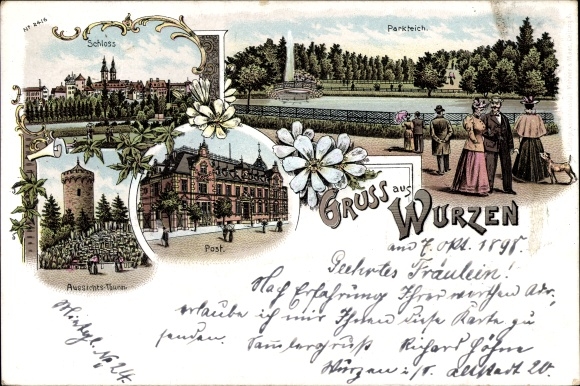 Nr. 2416
Schloss
Parkteich.
Aussichts-Thurm.
Post.
GRUSS aus WURZEN
am 7. Okt. 1898.
Geehrtes Fräulein!
Nach Erfahrung Ihrer werthen Adr.
erlaube ich mir Ihnen diese Karte zu
senden. Sammlergruß Richard Höhne
Wurzen i/S. Altstadt 20.
Mitgl. No 24.